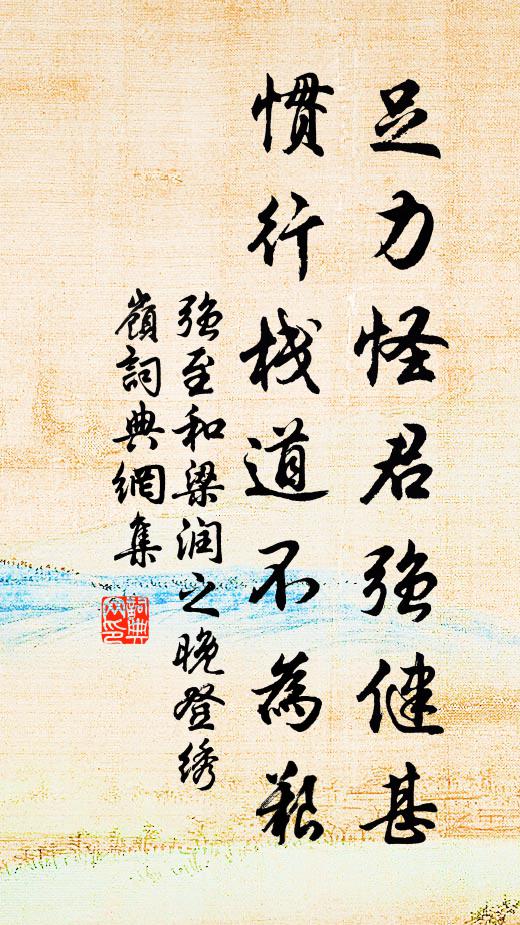 足力怪君強健甚
慣行棧道不為艱
強至和梁润之晚登绣
嶺詞典網集
詞典